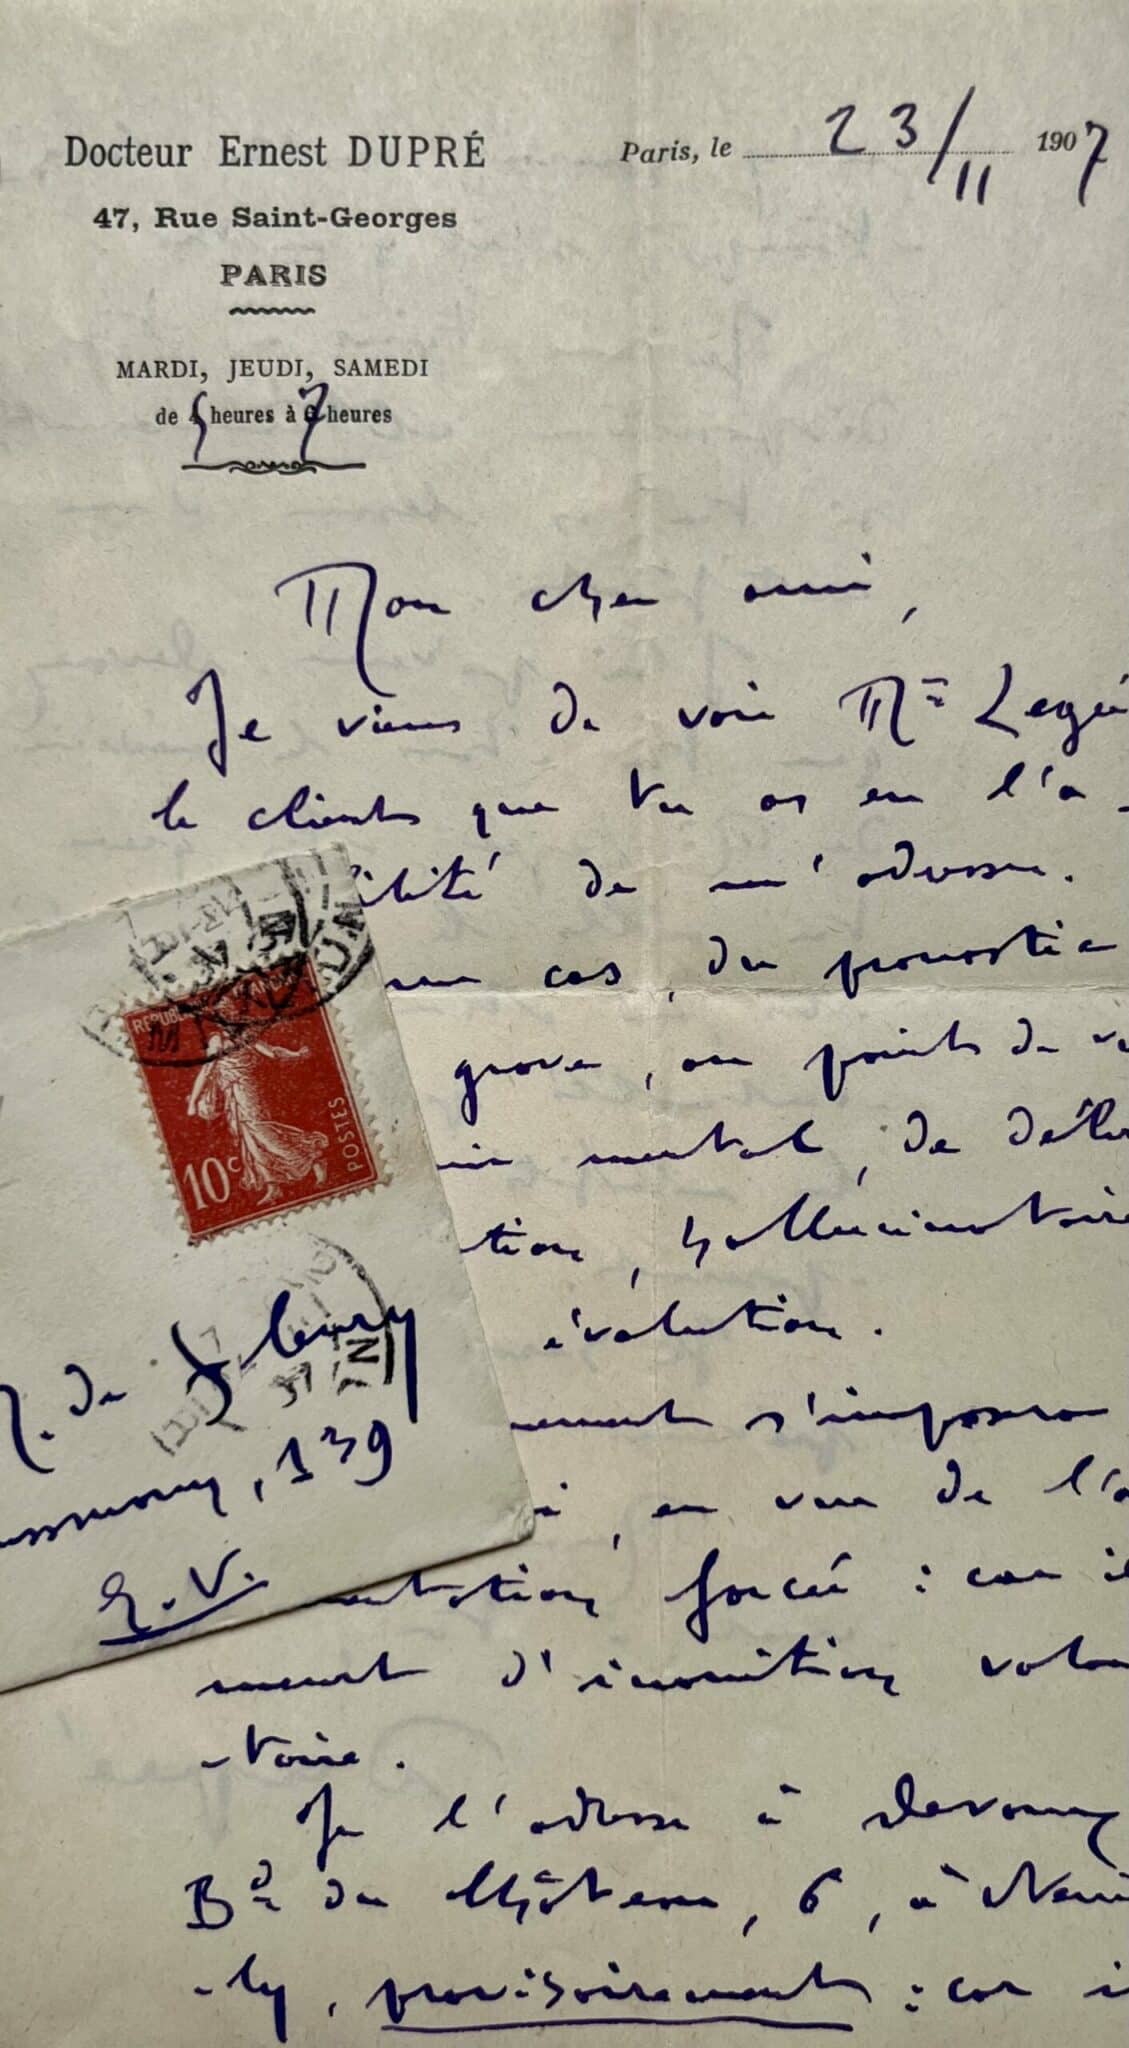 Docteur Ernest DUPRÉ
47, Rue Saint-Georges
PARIS
MARDI, JEUDI, SAMEDI
de 5 heures à 7 heures
Paris, le 23/11 1907
Mon cher ami,
Je viens de voir Mr
le client que tu as eu l'a-
ilité de m'adresser.
un cas, du pronostic
grave, au point de
mental, de
tion, hallucinatoire
évolution.
s'imposera
, en vue de l'a
ntation forcée : car il
meurt d'inanition volon
-taire.
Je l'adresse à
Bd du Château, 6, à Neuil
-ly, provisoirement : car i
REPUBLIQUE FRANÇAISE
10c
POSTES
. de Fleury
139
E.V.